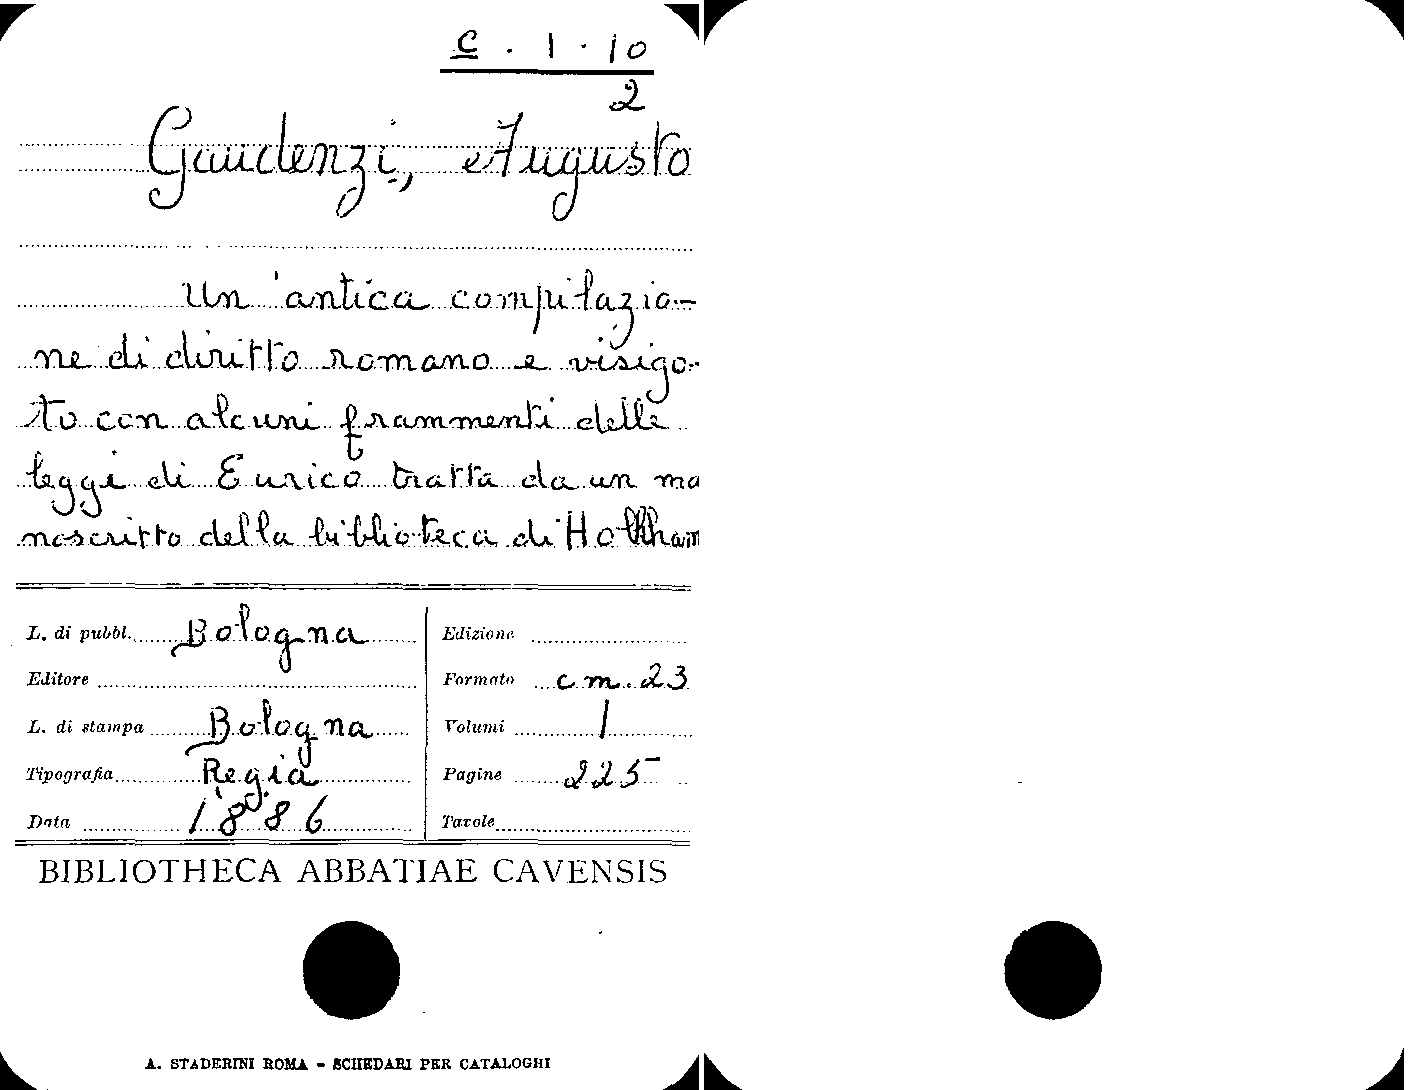 C . 1 . 10
2
Gaudenzi, Augusto
Un'antica compilazio-
ne di diritto romano e visigo-
to con alcuni frammenti delle
leggi di Eurico tratta da un ma
noscritto della biblioteca di Holkham
L. di pubbl. Bologna
Edizione
Editore
Formato cm. 23
L. di stampa Bologna
Volumi 1
Tipografia Regia
Pagine 225
Data 1886
Tavole
BIBLIOTHECA ABBATIAE CAVENSIS
A. STADERINI ROMA - SCHEDARI PER CATALOGHI